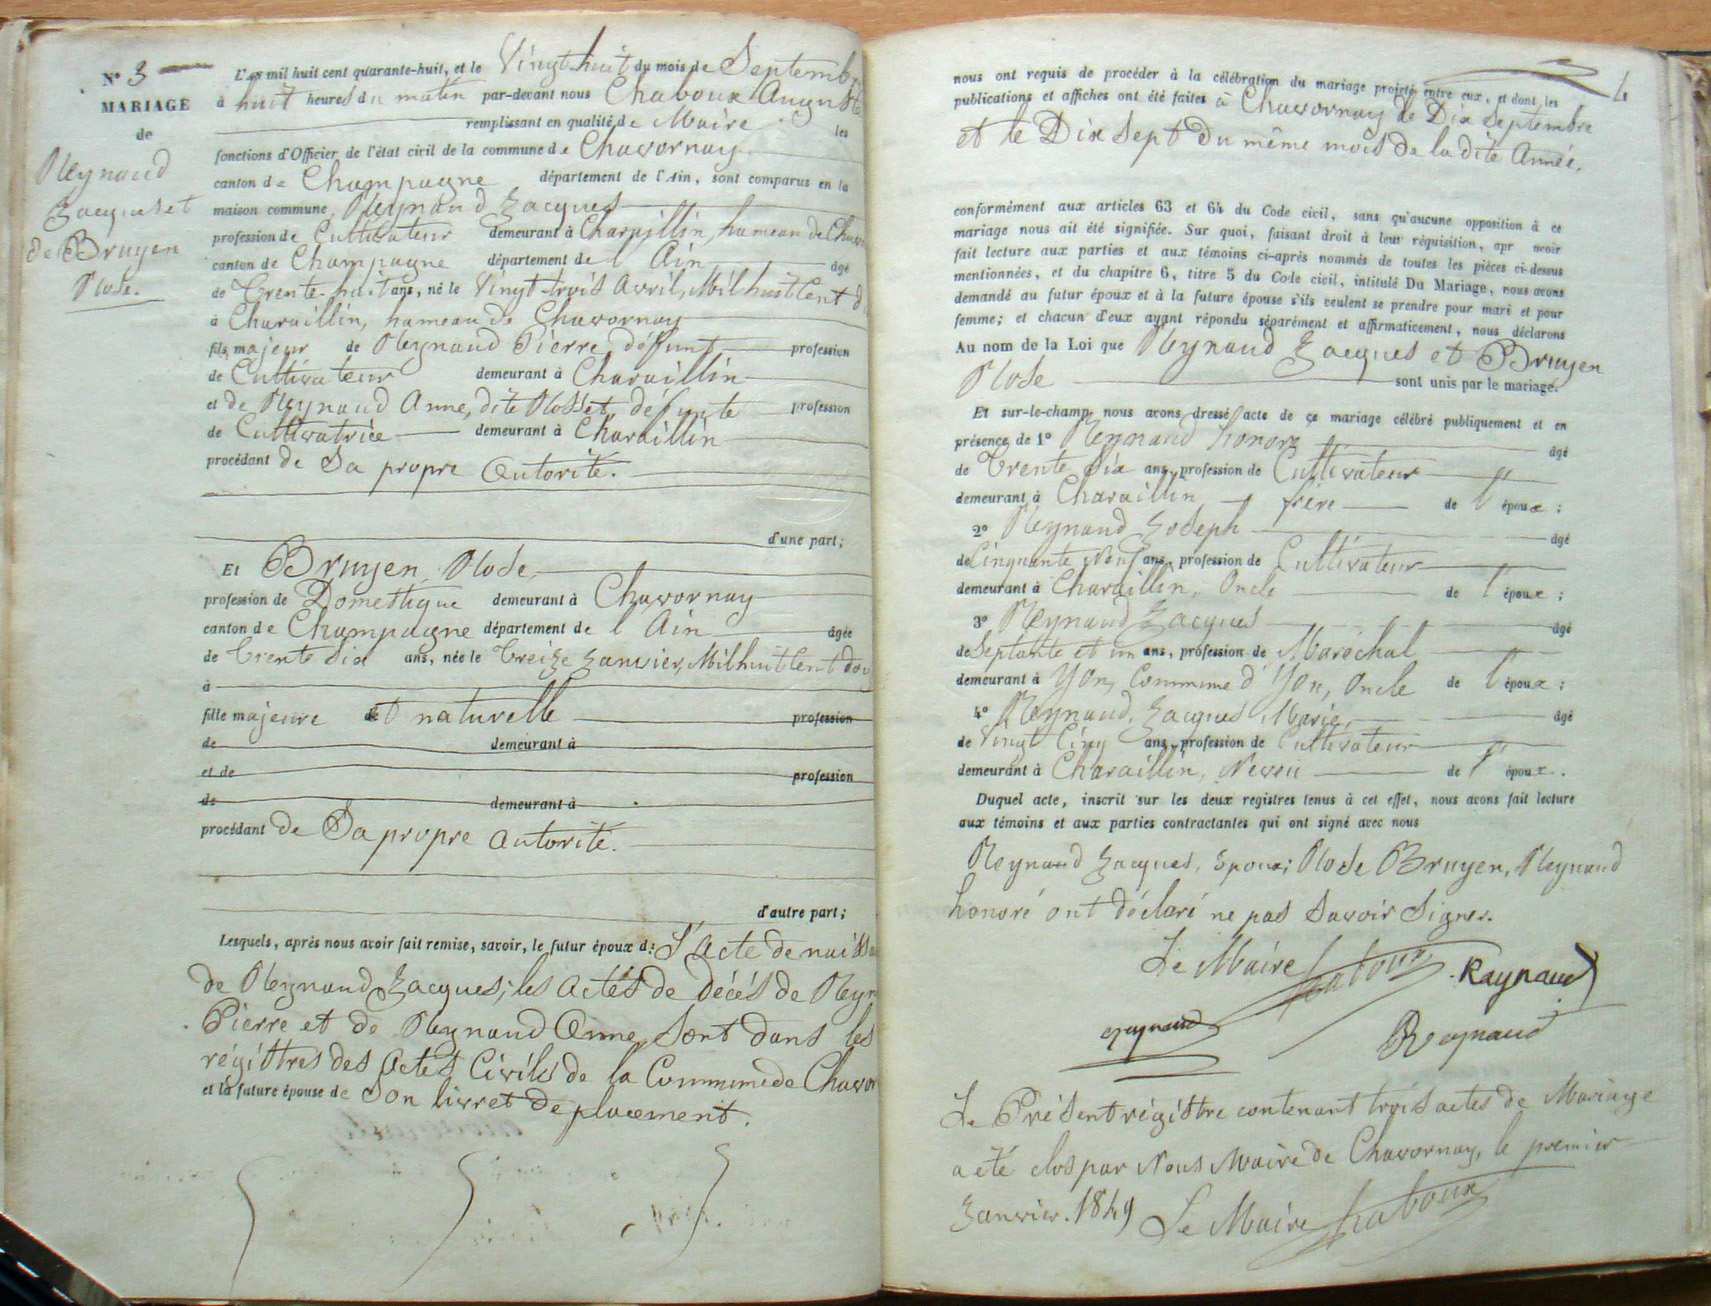 N° 3
MARIAGE
de
Reynaud
Jacques et
de Bruyen
Rose.
L'an mil huit cent quarante-huit, et le Vingt huit du mois de Septemb
à huit heures du matin par-devant nous Chaboux August
remplissant en qualité de Maire les
fonctions d'Officier de l'état civil de la commune de Chavornay
canton de Champagne département de l'Ain, sont comparus en la
maison commune Reynaud Jacques
profession de Cultivateur demeurant à Charaillin, hameau de Chavo
canton de Champagne département de l Ain âgé
de Trente-huit ans, né le Vingt trois Avril, Mil huit Cent d
à Charaillin, hameau de Chavornay
fils majeur de Reynaud Pierre défunt profession
de Cultivateur demeurant à Charaillin
et de Reynaud Anne, dite Rosset, défunte profession
de Cultivatrice demeurant à Charaillin
procédant de Sa propre Autorité.
d'une part;
Et Bruyen Rose
profession de Domestique demeurant à Chavornay
canton de Champagne département de l Ain âgée
de Trente Six ans, née le Treize Janvier, Mil huit Cent dou
à
fille majeure et naturelle profession
de demeurant à
et de profession
de demeurant à
procédant de Sa propre autorité.
d'autre part;
Lesquels, après nous avoir fait remise, savoir, le futur époux d: L'Acte de naissa
de Reynaud Jacques; les Actes de Décés de Reyn
Pierre et de Reynaud Anne, Sont dans les
régistres des Actes Civils de la Commune de Chavor
et la future épouse de Son livret de placement.
4
nous ont requis de procéder à la célébration du mariage projeté entre eux, et dont les
publications et affiches ont été faites à Chavornay le Dix Septembre
et le Dix Sept du même mois de la dite Année.
conformément aux articles 63 et 64 du Code civil, sans qu'aucune opposition à ce
mariage nous ait été signifiée. Sur quoi, faisant droit à leur réquisition, apr avoir
fait lecture aux parties et aux témoins ci-après nommés de toutes les pièces ci-dessus
mentionnées, et du chapitre 6, titre 5 du Code civil, intitulé Du Mariage, nous avons
demandé au futur époux et à la future épouse s'ils veulent se prendre pour mari et pour
femme; et chacun d'eux ayant répondu séparément et affirmativement, nous déclarons
Au nom de la Loi que Reynaud Jacques et Bruyen
Rose sont unis par le mariage.
Et sur-le-champ nous avons dressé acte de ce mariage célébré publiquement et en
présence de 1° Reynaud honoré âgé
de Trente Six ans, profession de Cultivateur
demeurant à Charaillin, frère de l' époux;
2° Reynaud Joseph âgé
de Cinquante Neuf ans, profession de Cultivateur
demeurant à Charaillin, Oncle de l' époux;
3° Reynaud Jacques âgé
de Septante et un ans, profession de Maréchal
demeurant à Yon, Commune d'Yon, Oncle de l' époux;
4° Reynaud, Jacques Marie, âgé
de Vingt Cinq ans, profession de Cultivateur
demeurant à Charaillin, Neveu de l' époux.
Duquel acte, inscrit sur les deux registres tenus à cet effet, nous avons fait lecture
aux témoins et aux parties contractantes qui ont signé avec nous
Reynaud Jacques, Epoux; Rose Bruyen, Reynaud
honoré ont déclaré ne pas Savoir Signer.
Le Maire Chaboux Raynaud
Reynaud Reynaud
Le Présent régistre contenant trois actes de Mariage
a été clos par Nous Maire de Chavornay, le premier
Janvier. 1849 Le Maire Chaboux